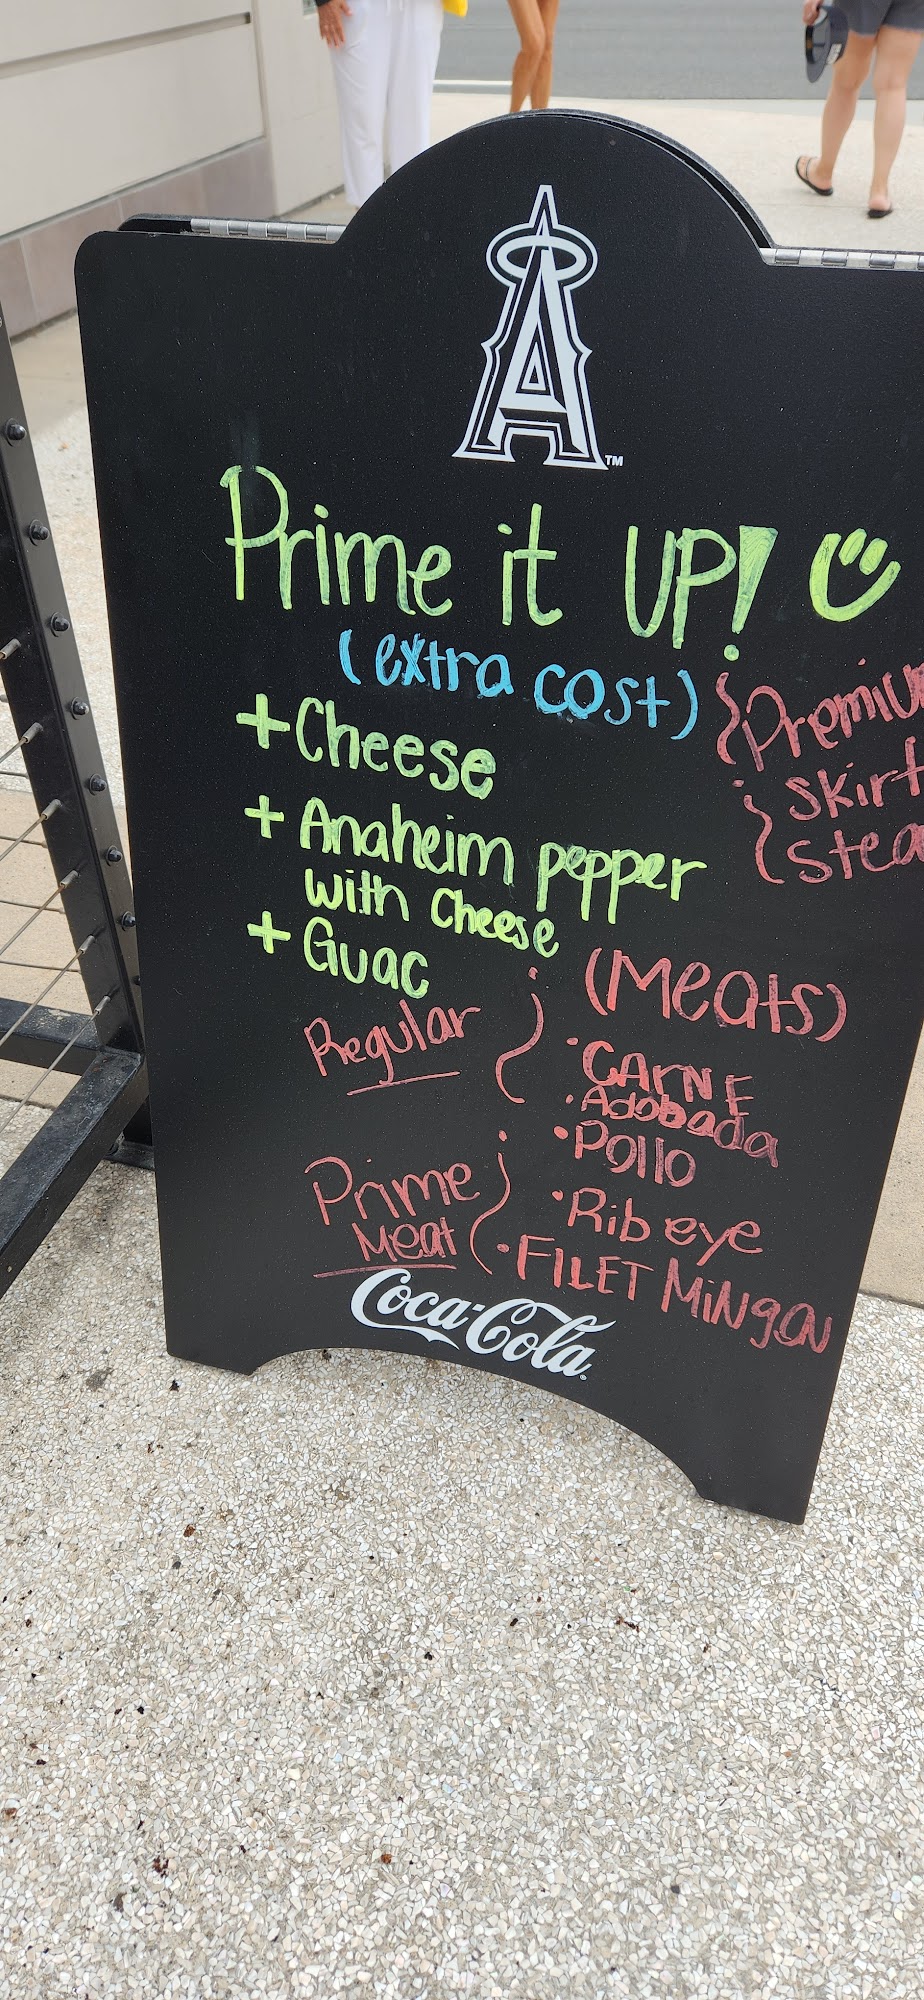 A TM
Prime it UP!
(extra cost)
+ Cheese
+ Anaheim pepper
with Cheese
+ Guac
{Premium
Skirt
(Meats)
Regular
• CArNE
• Adobada
• Pollo
Prime
Meat
• Rib eye
• FILET MiNgoN
Coca-Cola